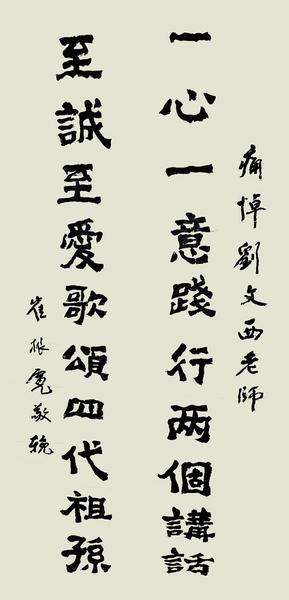 痛悼劉文西老師
一心一意踐行两個講話
至誠至愛歌頌四代祖孫
崔振寬敬輓